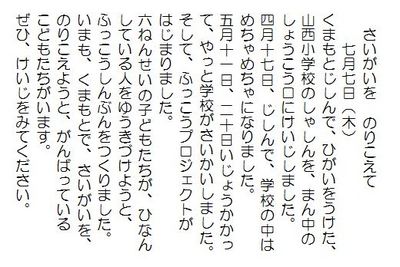 さいがいを　のりこえて
七月七日（木）
くまもとじしんで、ひがいをうけた、
山西小学校のしゃしんを、まん中の
しょうこう口にけいじしました。
四月十七日、じしんで、学校の中は
めちゃめちゃになりました。
五月十一日、二十日いじょうかかっ
て、やっと学校がさいかいしました。
そして、ふっこうプロジェクトが
はじまりました。
六ねんせいの子どもたちが、ひなん
している人をゆうきづけようと、
ふっこうしんぶんをつくりました。
いまも、くまもとで、さいがいを、
のりこえようと、がんばっている
こどもたちがいます。
ぜひ、けいじをみてください。